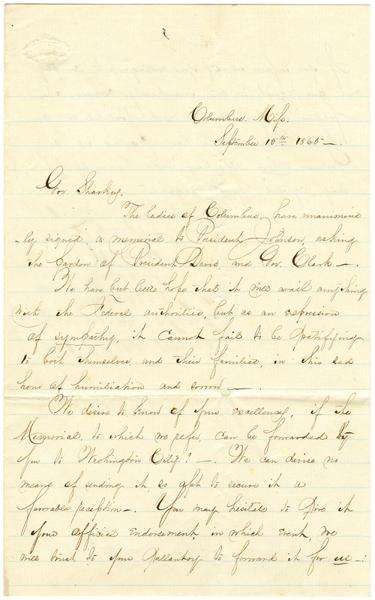 Columbus. Miss.
September 10th 1865—.
Gov. Sharkey.
The ladies of Columbus, have unanimous
-ly signed a memorial to President Johnson, asking
the pardon of President Davis, and Gov. Clark—.
We have but little hope that it will avail anything
with the Federal authorities, but as an expression
of sympathy, it cannot fail to be gratifying
to both themselves, and their families, in this sad
hour of humiliation and sorrow—.
We desire to know of your excellency, if the
Memorial, to which we refer, can be forwarded by
you to Washington City?—. We can devise no
means of sending it, so apt to secure it a
favorable reception—. You may hesitate to give it
your official endorsement, in which event, we
will trust to your gallantry to forward it for us—: